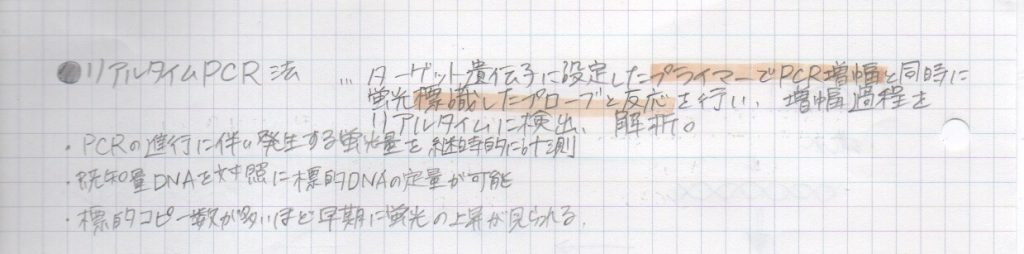 ●リアルタイムPCR法 … ターゲット遺伝子に設定したプライマーでPCR増幅と同時に
蛍光標識したプローブと反応を行い、増幅過程を
リアルタイムに検出、解析。
・PCRの進行に伴い発生する蛍光量を継時的に計測
・既知量DNAを対照に標的DNAの定量が可能
・標的コピー数が多いほど早期に蛍光の上昇が見られる.